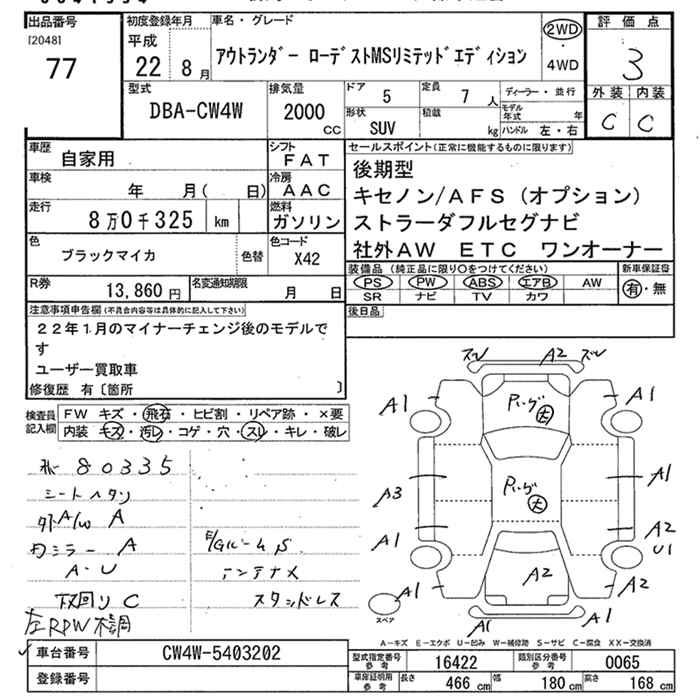 出品番号
[2048]
77
初度登録年月
平成
22 8月
車名・グレード
アウトランダー ローデストMSリミテッドエディション
2WD
・
4WD
評価点
3
外装 内装
C C
型式
DBA-CW4W
排気量
2000
CC
ドア 5
定員 7 人
形状
SUV
積載
kg
ディーラー・並行
モデル年式 年
ハンドル 左・右
車歴 自家用
シフト
FAT
車検 年 月( 日)
冷房
AAC
走行 8万0千325 km
燃料
ガソリン
色 ブラックマイカ 色替
色コード
X42
R券 13,860円
名変通知期限 月 日
セールスポイント(正常に機能するものに限ります)
後期型
キセノン/AFS(オプション)
ストラーダフルセグナビ
社外AW ETC ワンオーナー
装備品(純正品に限り○をつけてください)
PS PW ABS エアB AW
SR ナビ TV カワ
新車保証書
有・無
後日品
注意事項申告欄(不具合内容等は具体的に記入して下さい)
22年1月のマイナーチェンジ後のモデルで
す
ユーザー買取車
修復歴 有〔箇所 〕
検査員
記入欄
FW キズ・飛石・ヒビ割・リペア跡・×要
内装 キズ・汚レ・コゲ・穴・スレ・キレ・破レ
80335
シートヘタリ
外A/W A
内ミラー A
A・U
下回り C
左RPW不調
E/GルームS
アンテナメ
スタッドレス
ズレ A2 ズレ
A1 A1
P.レグ大
A3 A1
P.レグ大
A1 A2
U1
A1 A2 A2
スペア
A1 A1
A−キズ E−エクボ U−凹み W−補修跡 S−サビ C−腐食 XX−交換済
車台番号 CW4W-5403202
登録番号
型式指定番号
参考
16422
類別区分番号
参考
0065
車庫証明用
参考
長さ 466 cm 幅 180 cm 高さ 168 cm